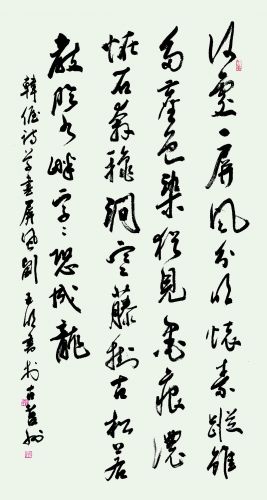 何處一屏風分明懷素蹤雖
多塵色染猶見墨痕濃
怪石奔秋澗寒藤掛古松若
教臨水畔字々恐成龍
韓偓詩草書屏風劉書於古州